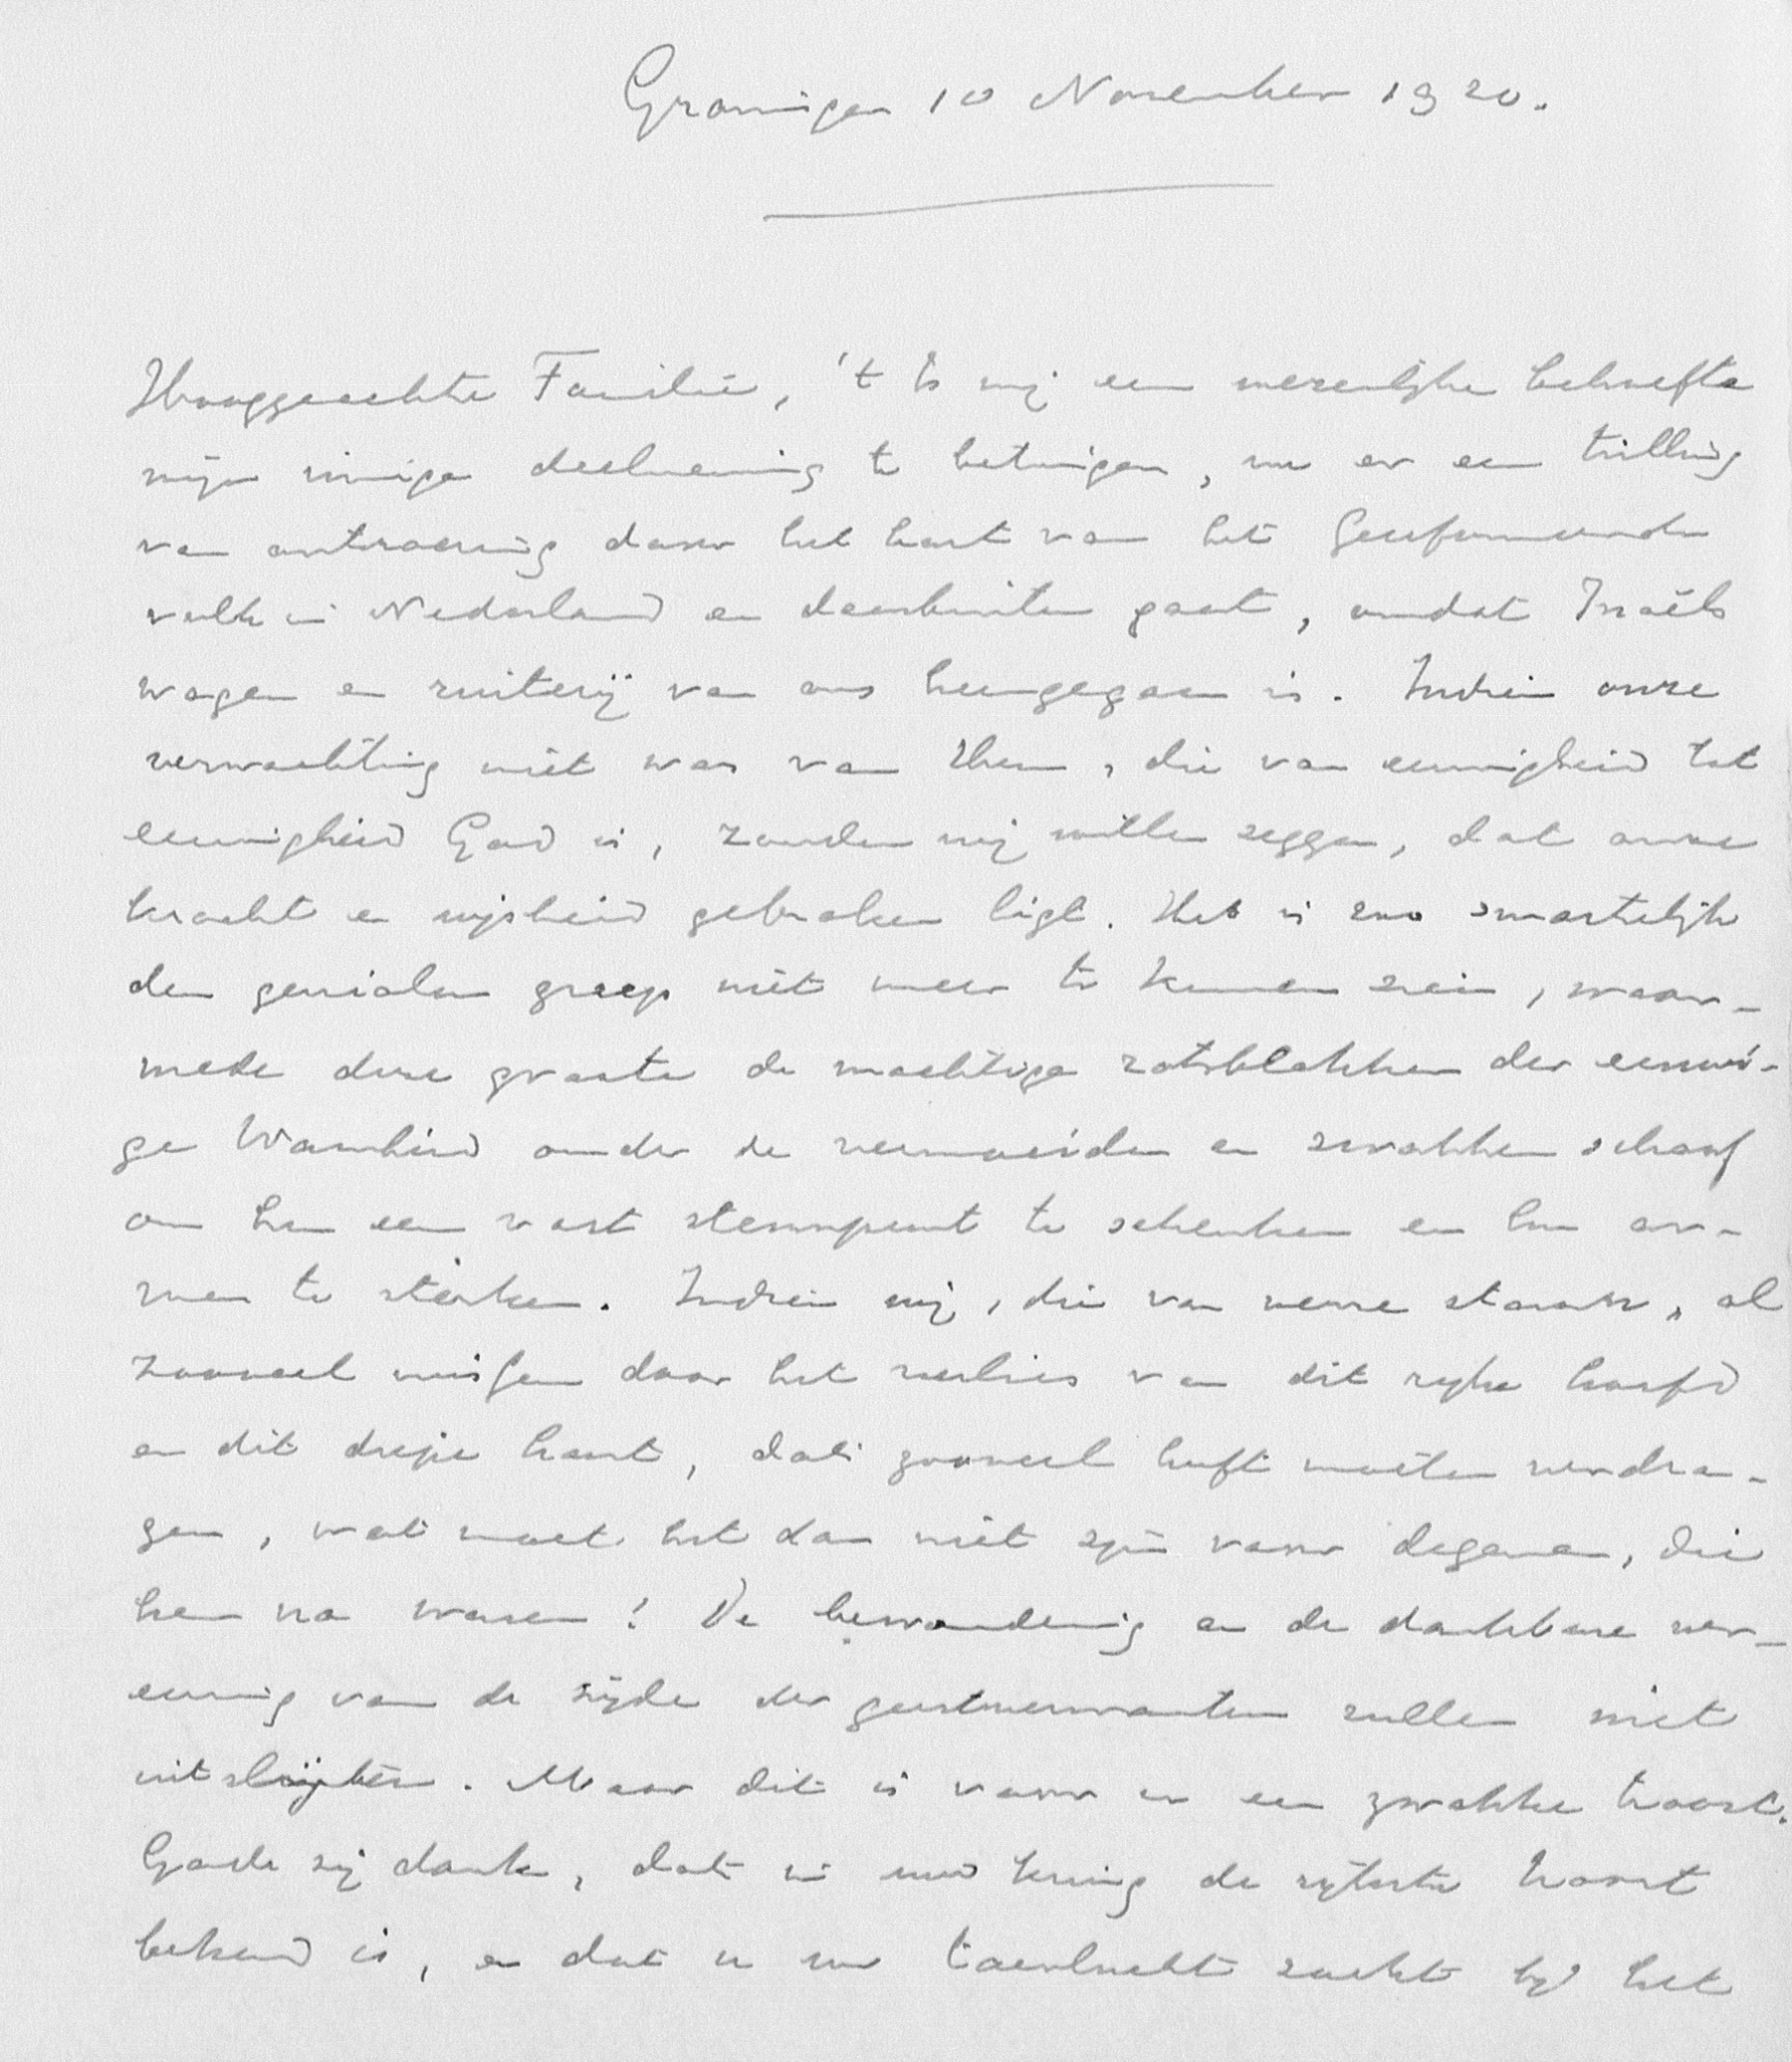 Groningen 10 November 1920.
Hooggeachte Familie, 't is mij een wezenlijke behoefte
mijn innige deelneming te betuigen, nu er een trilling
van ontroering door het hart van het Gereformeerde
volk in Nederland en daarbuiten gaat, omdat Israëls
wagen en ruiterij van ons heengegaan is. Indien onze
verwachting niet was van Hem, die van eeuwigheid tot
eeuwigheid God is, zouden wij willen zeggen, dat onze
kracht en wijsheid gebroken ligt. Het is zoo smartelijk
den genialen greep niet meer te kunnen zien, waar-
mede deze groote de machtige rotsblokken der eeuwi-
ge Waarheid onder de vermoeiden en zwakken schoof
om hen een vast steunpunt te schenken en hun ar-
men te sterken. Indien wij, die van verre stonden, al
zooveel missen door het verlies van dit rijke hoofd
en dit diepe hart, dat zooveel heeft moeten verdra-
gen, wat moet het dan niet zijn voor degenen, die
hem na waren! De bewondering en de dankbare ver-
eering van de zijde der geestverwanten zullen niet
uitslijten. Maar dit is voor u een zwakke troost.
Gode zij dank, dat in uw kring de rijkste troost
bekend is, en dat u uw toevlucht zoekt bij het